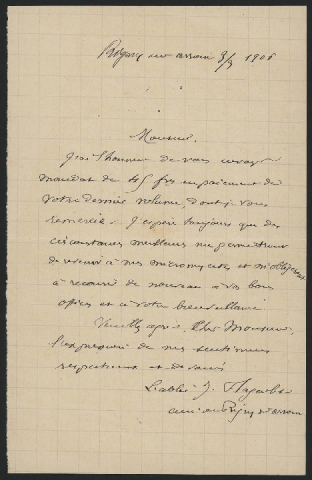 Rigny sur arroux 8/3 1906
Monsieur,
J'ai l'honneur de vous envoyer
mandat de 45 frs en paiement de
votre dernier volume, dont je vous
remercie. J'espère toujours que des
circonstances meilleures me permettront
de revenir à mes micromycètes et m'obligeront
à recourir de nouveau à vos bons
offices et à votre bienveillance.
Veuillez agréer, Monsieur,
l'expression de mes sentiments
respectueux et dévoués
L'abbé J.
curé de Rigny s/ arroux